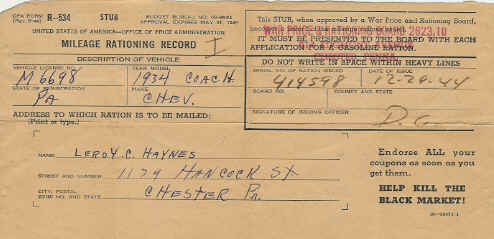 R-534 STUB
UNITED STATES OF AMERICA—OFFICE OF PRICE ADMINISTRATION
MILEAGE RATIONING RECORD I
DESCRIPTION OF VEHICLE
VEHICLE LICENSE YEAR MODEL
M 6698 1934 COACH
STATE OF REGISTRATION MAKE
PA CHEV.
ADDRESS TO WHICH RATION IS TO BE MAILED:
(Print or type.)
This STUB, when approved by a War Price and Rationing Board,
IT MUST BE PRESENTED TO THE BOARD WITH EACH
APPLICATION FOR A GASOLINE RATION.
DO NOT WRITE IN SPACE WITHIN HEAVY LINES
SERIAL NO. OF RATION ISSUED DATE OF ISSUE
414598 12-29-44
BOARD NO. COUNTY AND STATE
SIGNATURE OF ISSUING OFFICER
NAME LEROY. C. HAYNES
STREET AND NUMBER 1174 HANCOCK ST
CITY, POSTAL ZONE NO. AND STATE CHESTER PA.
Endorse ALL your
coupons as soon as you
get them.
HELP KILL THE
BLACK MARKET!